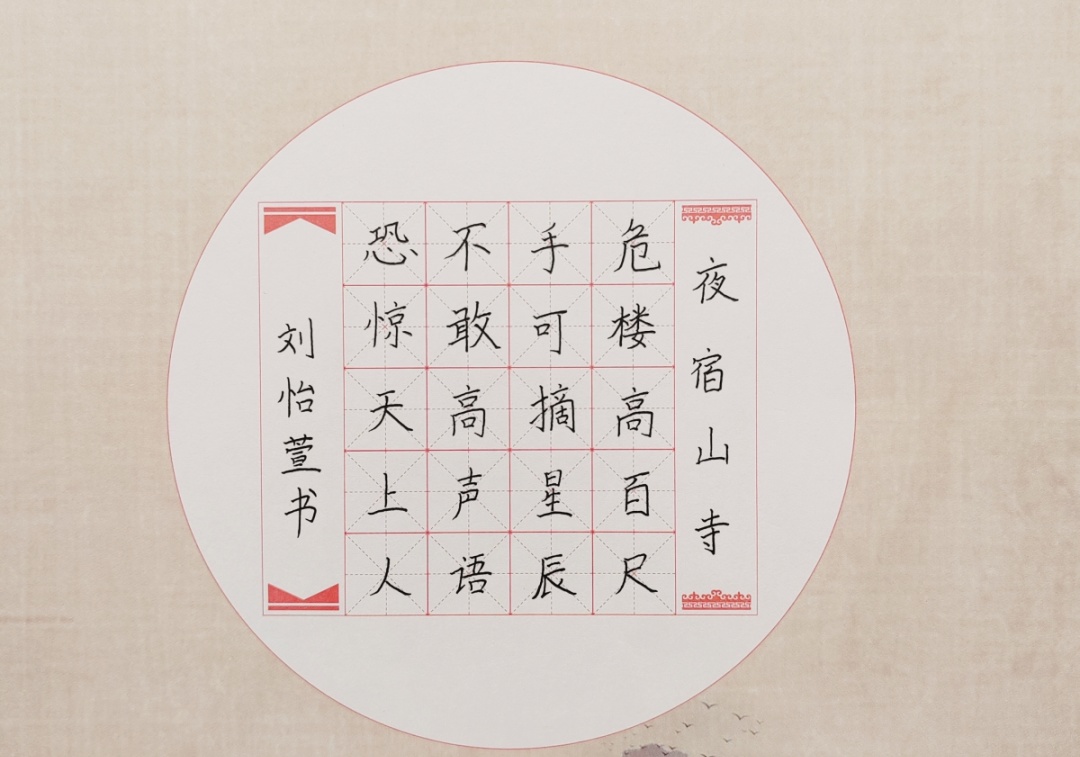 夜宿山寺
危楼高百尺
手可摘星辰
不敢高声语
恐惊天上人
刘怡萱书